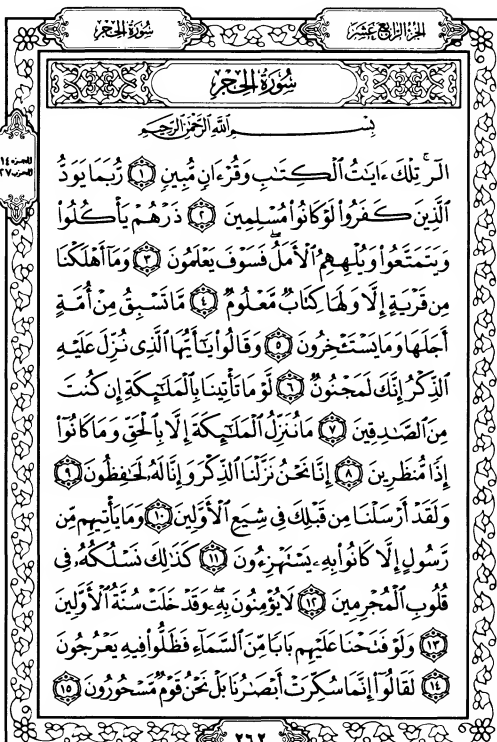 سُورَةُ الحِجْر
الجُزْءُ الرَّابِعَ عَشَرَ
سُورَةُ الحِجْرِ
الجزء ١٤
الحزب ٢٧
بِسْمِ اللَّهِ الرَّحْمَٰنِ الرَّحِيمِ
الٓرۚ تِلْكَ ءَايَٰتُ ٱلْكِتَٰبِ وَقُرْءَانٍ مُّبِينٍ ١ رُّبَمَا يَوَدُّ
ٱلَّذِينَ كَفَرُوا۟ لَوْ كَانُوا۟ مُسْلِمِينَ ٢ ذَرْهُمْ يَأْكُلُوا۟
وَيَتَمَتَّعُوا۟ وَيُلْهِهِمُ ٱلْأَمَلُۖ فَسَوْفَ يَعْلَمُونَ ٣ وَمَآ أَهْلَكْنَا
مِن قَرْيَةٍ إِلَّا وَلَهَا كِتَابٌ مَّعْلُومٌ ٤ مَّا تَسْبِقُ مِنْ أُمَّةٍ
أَجَلَهَا وَمَا يَسْتَـْٔخِرُونَ ٥ وَقَالُوا۟ يَٰٓأَيُّهَا ٱلَّذِى نُزِّلَ عَلَيْهِ
ٱلذِّكْرُ إِنَّكَ لَمَجْنُونٌ ٦ لَّوْ مَا تَأْتِينَا بِٱلْمَلَٰٓئِكَةِ إِن كُنتَ
مِنَ ٱلصَّٰدِقِينَ ٧ مَا نُنَزِّلُ ٱلْمَلَٰٓئِكَةَ إِلَّا بِٱلْحَقِّ وَمَا كَانُوٓا۟
إِذًا مُّنظَرِينَ ٨ إِنَّا نَحْنُ نَزَّلْنَا ٱلذِّكْرَ وَإِنَّا لَهُۥ لَحَٰفِظُونَ ٩
وَلَقَدْ أَرْسَلْنَا مِن قَبْلِكَ فِى شِيَعِ ٱلْأَوَّلِينَ ١٠ وَمَا يَأْتِيهِم مِّن
رَّسُولٍ إِلَّا كَانُوا۟ بِهِۦ يَسْتَهْزِءُونَ ١١ كَذَٰلِكَ نَسْلُكُهُۥ فِى
قُلُوبِ ٱلْمُجْرِمِينَ ١٢ لَا يُؤْمِنُونَ بِهِۦۖ وَقَدْ خَلَتْ سُنَّةُ ٱلْأَوَّلِينَ
١٣ وَلَوْ فَتَحْنَا عَلَيْهِم بَابًا مِّنَ ٱلسَّمَآءِ فَظَلُّوا۟ فِيهِ يَعْرُجُونَ
١٤ لَقَالُوٓا۟ إِنَّمَا سُكِّرَتْ أَبْصَٰرُنَا بَلْ نَحْنُ قَوْمٌ مَّسْحُورُونَ ١٥
٢٦٢